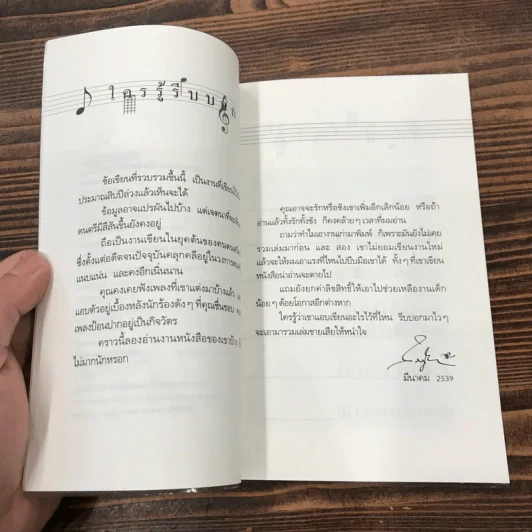 ใครรู้รีบบอก
ข้อเขียนที่รวบรวมขึ้นนี้ เป็นงานที่เขียน
ประมาณสิบปีล่วงแล้วเห็นจะได้
ข้อมูลอาจแปรผันไปบ้าง แต่เจตนาที่จะ
ดนตรีมีสีสันขึ้นยังคงอยู่
ถือเป็นงานเขียนในยุคต้นของคน
ซึ่งตั้งแต่อดีตจนปัจจุบันคลุกคลีอยู่ในวงการ
แนบแน่น และคงอีกเนิ่นนาน
คุณคงเคยฟังเพลงที่เขาแต่งมาบ้างแล้ว
แอบตัวอยู่เบื้องหลังนักร้องดังๆ ที่คุณชื่นชอบ
เพลงป้อนปากอยู่เป็นกิจวัตร
คราวนี้ลองอ่านงานหนังสือของเขาบ้าง
ไม่มากนักหรอก
คุณอาจจะรักหรือชังเขาเพิ่มอีกเล็กน้อย หรือถ้า
อ่านแล้วทั้งรักทั้งชัง ก็คงคล้ายๆ เวลาที่ผมอ่าน
ถามว่าทำไมเอางานเก่ามาพิมพ์ ก็เพราะมันยังไม่เคย
รวมเล่มมาก่อน และ สอง เขาไม่ยอมเขียนงานใหม่
แล้วจะให้ผมเอาแรงที่ไหนไปบีบมือเขาได้ ทั้งๆ ที่เขาเขียน
หนังสือน่าอ่านจะตายไป
แถมยังยกค่าลิขสิทธิ์ให้เอาไปช่วยเหลืองานเด็ก
น้อยๆ ด้อยโอกาสอีกต่างหาก
ใครรู้ว่าเขาแอบเขียนอะไรไว้ที่ไหน รีบบอกมาไวๆ
จะเอามารวมเล่มขายเสียให้หนำใจ
มีนาคม 2539